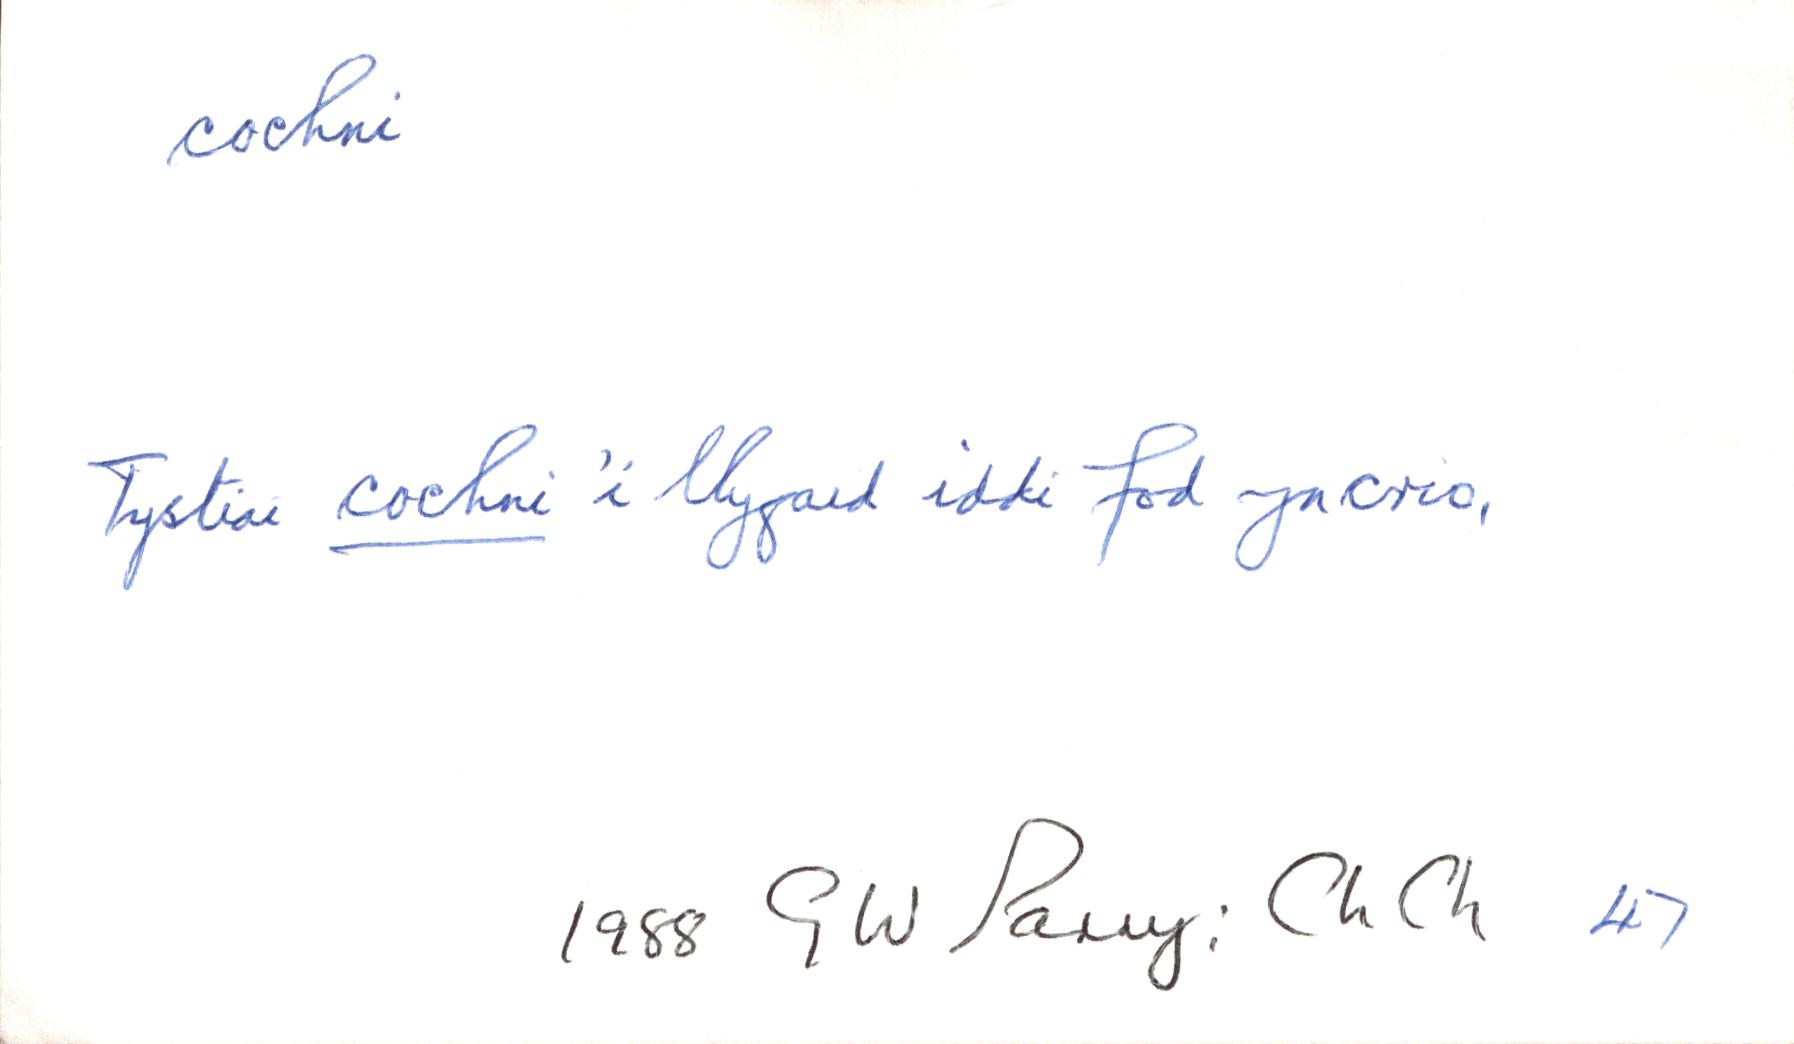 cochni
Tystiai cochni 'i llygaid iddi fod yn crio.
1988 GW Parry: Ch Ch 47